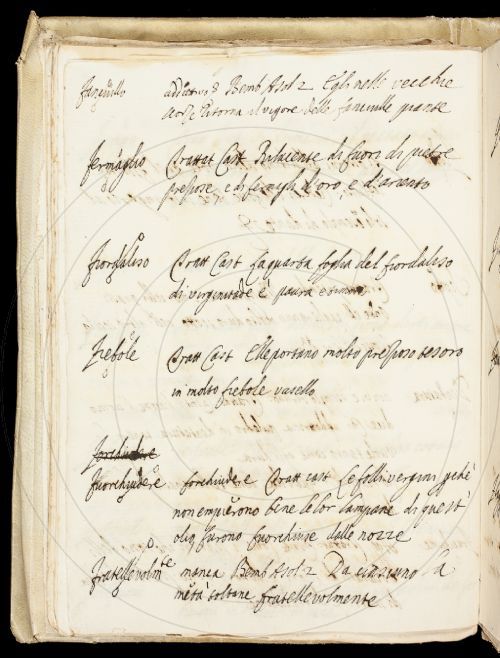 fanciullo addiettivo Bemb Asol 2 Egli nelle vecchie
ritorna il vigore delle fanciulle piante
fermaglio Trattat Cast Rilucente di fuori di pietre
preziose e di fermagli d'oro, e d'argento
fiordaliso Tratt Cast La quarta foglia del fiordaliso
di virginitade è paura e
fiebole Tratt Cast Elle portano molto prezioso tesoro
in molto fiebole vasello
forchiudere
fuorchiudere forchiudere Tratt cast Le folli vergini perchè
non empierono bene le lor lampane di quest'
olio, furono fuorchiuse dalle nozze
fratellevolmte manca Bemb Asol 2 Da ciascuno la
metà toltane fratellevolmente